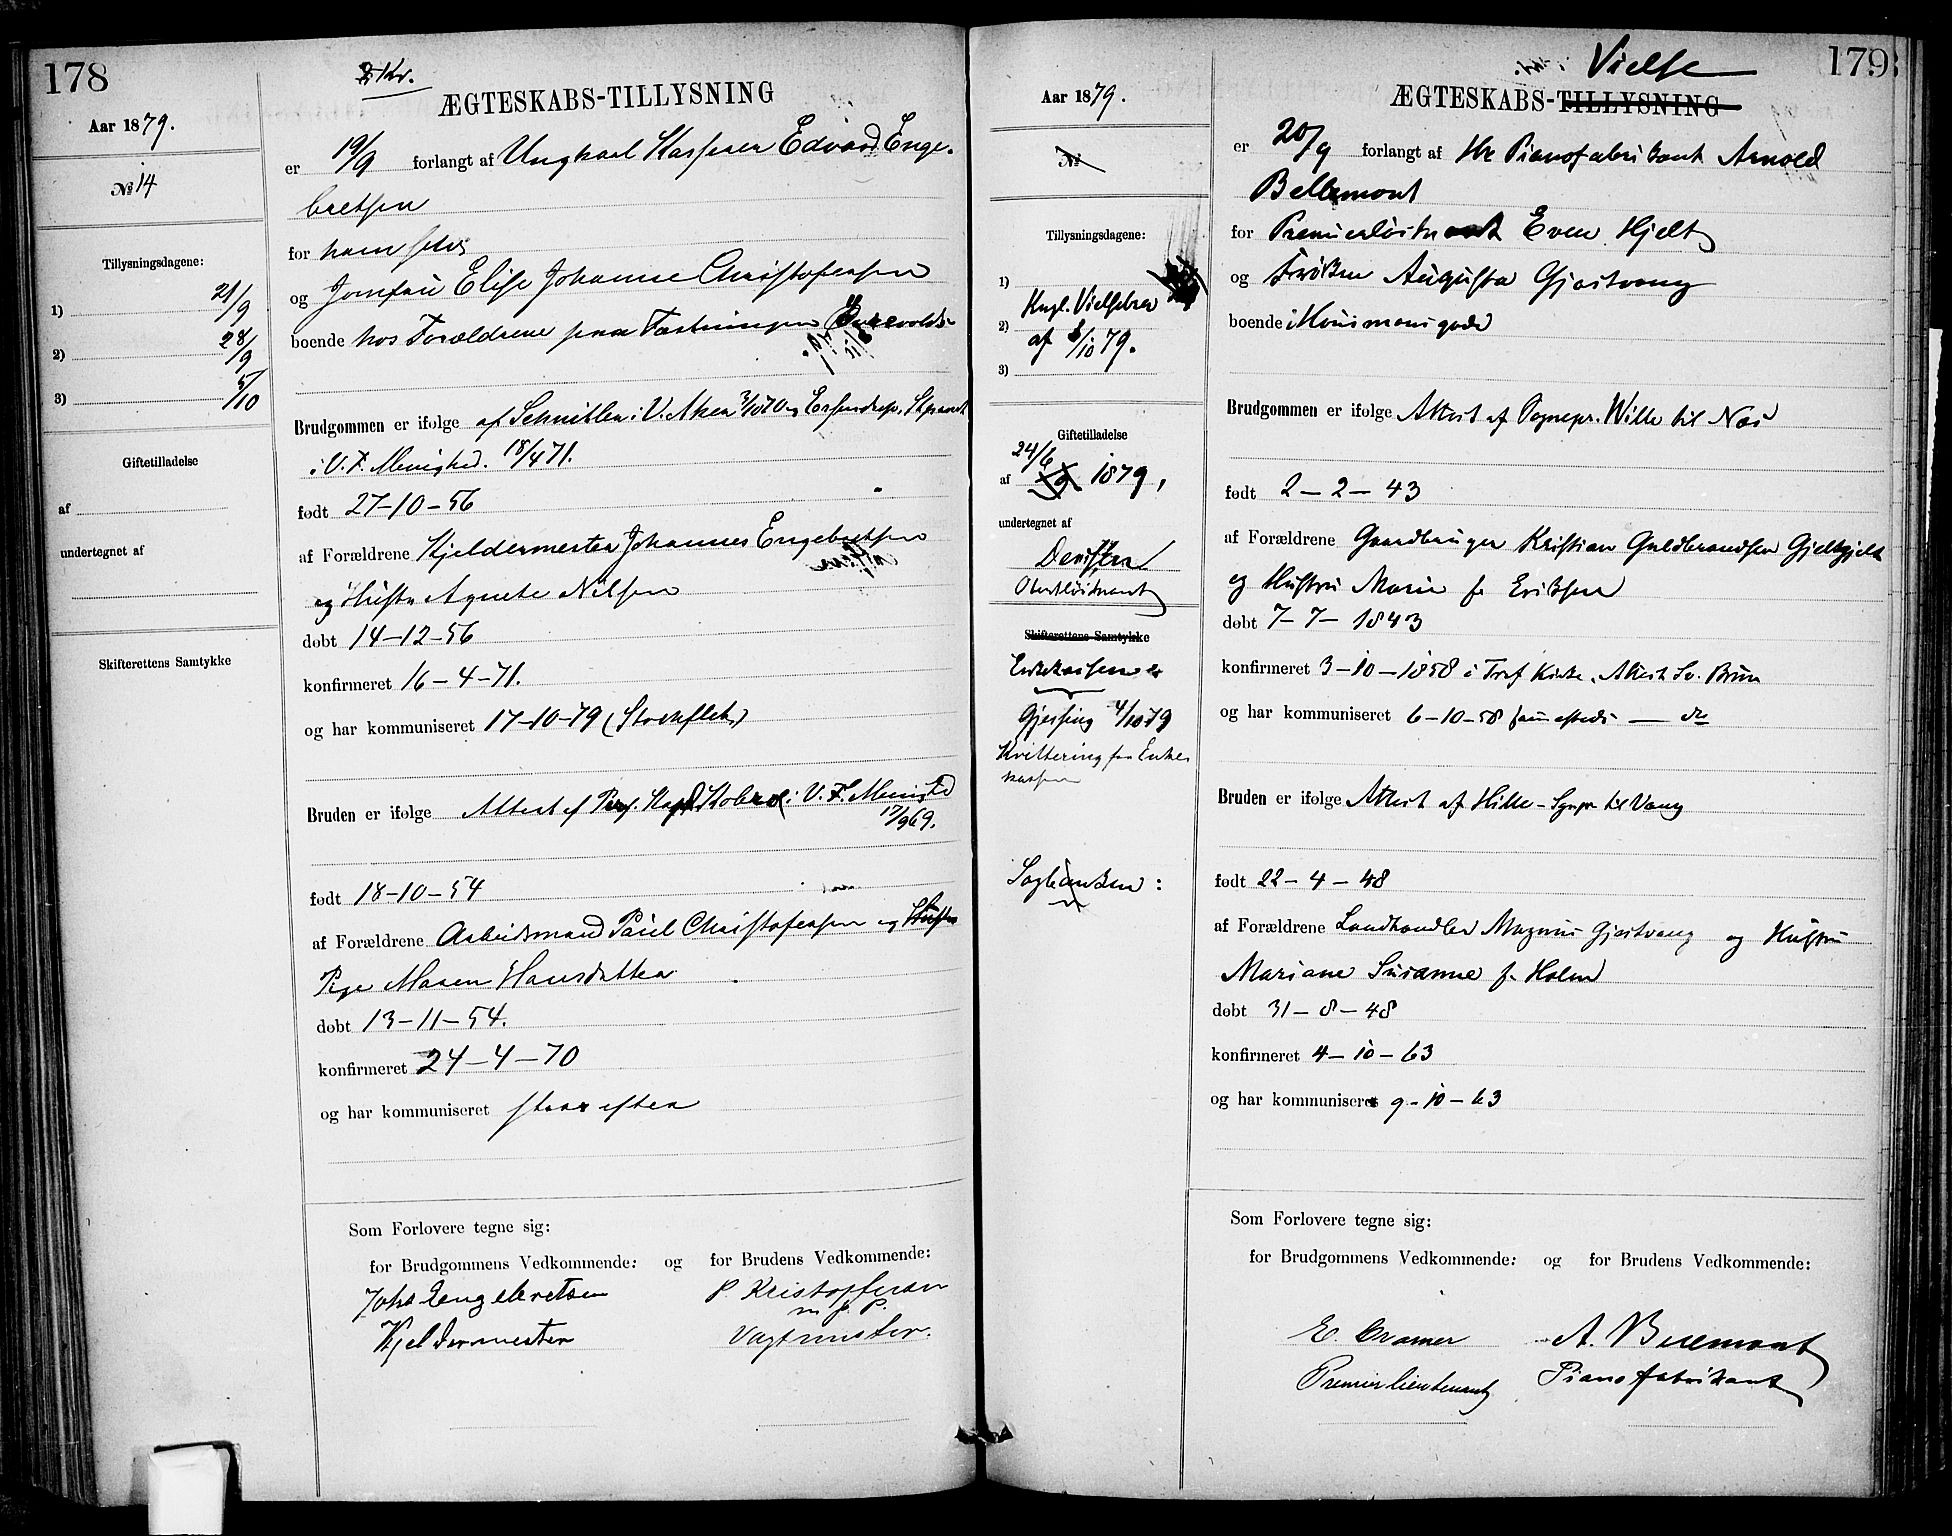 178
2 Kr.
ÆGTESKABS-TILLYSNING
Aar 1879.
er 19/9 forlangt af Ungkarl Kasserer Edvard Enge-
bretsen
№ 14
for ham selv
og Jomfru Elise Johanne Christofersen
Tillysningsdagene:
1) 21/9
2) 28/9
3) 5/10
boende hos Forældrene paa Fæstningen
Brudgommen er ifølge af Schnitler i V. Aker 3/10 70 og
i V. F. Menighed. 18/4 71.
Giftetilladelse
af
undertegnet af
født 27-10-56
af Forældrene Kjeldermester Johannes Engebretsen
og Hustru Agnete Nilsen
døbt 14-12-56
Skifterettens Samtykke
konfirmeret 16-4-71.
og har kommuniseret 17-10-79 (Stockfleth)
Bruden er ifølge Attest af Pers. Kap. i V. F. Menighed
17/9 69.
født 18-10-54
af Forældrene Arbeidsmand Paul Christofersen og Hustru
Pige Maren Hansdatter
døbt 13-11-54.
konfirmeret 24-4-70
og har kommuniseret strax efter
Som Forlovere tegne sig:
for Brudgommens Vedkommende: og for Brudens Vedkommende:
Johs Engebretsen P. Kristoffersen
m. f. P.
Kjeldermester Vagtmester.
179
Vielse
ÆGTESKABS-TILLYSNING
Aar 1879.
№
er 20/9 forlangt af Hr Pianofabrikant Arnold
Bellemont
for Premierløitnant Even Hjelt
og Frøken Augusta Gjestvang
boende i Huusmansgade
Tillysningsdagene:
1)
Kngl. Vielsebrev
2)
af 8/10 79.
3)
Brudgommen er ifølge Attest af Sognepr. Wille til Næs
Giftetilladelse
24/6
af 1879,
undertegnet af
Oberstløitnant
født 2-2-43
af Forældrene Gaardbruger Kristian Guldbrandsen
og Hustru Marie f. Eriksen
døbt 7-7-1843
Skifterettens Samtykke
Enkekassen
Gjessing 4/10 79
Kvittering fra Enke
kassen
konfirmeret 3-10-1858 i Kirke. Attest Sv. Brun
og har kommuniseret 6-10-58 sammesteds — do
Bruden er ifølge Attest af Hille - Sgnpr til Vang
født 22-4-48
af Forældrene Landhandler Magnus Gjestvang og Hustru
Mariane Susanne f. Holm
døbt 31-8-48
konfirmeret 4-10-63
og har kommuniseret 9-10-63
Som Forlovere tegne sig:
for Brudgommens Vedkommende: og for Brudens Vedkommende:
E. Cramer A. Bellemont
Premierlieutenant Pianofabrikant